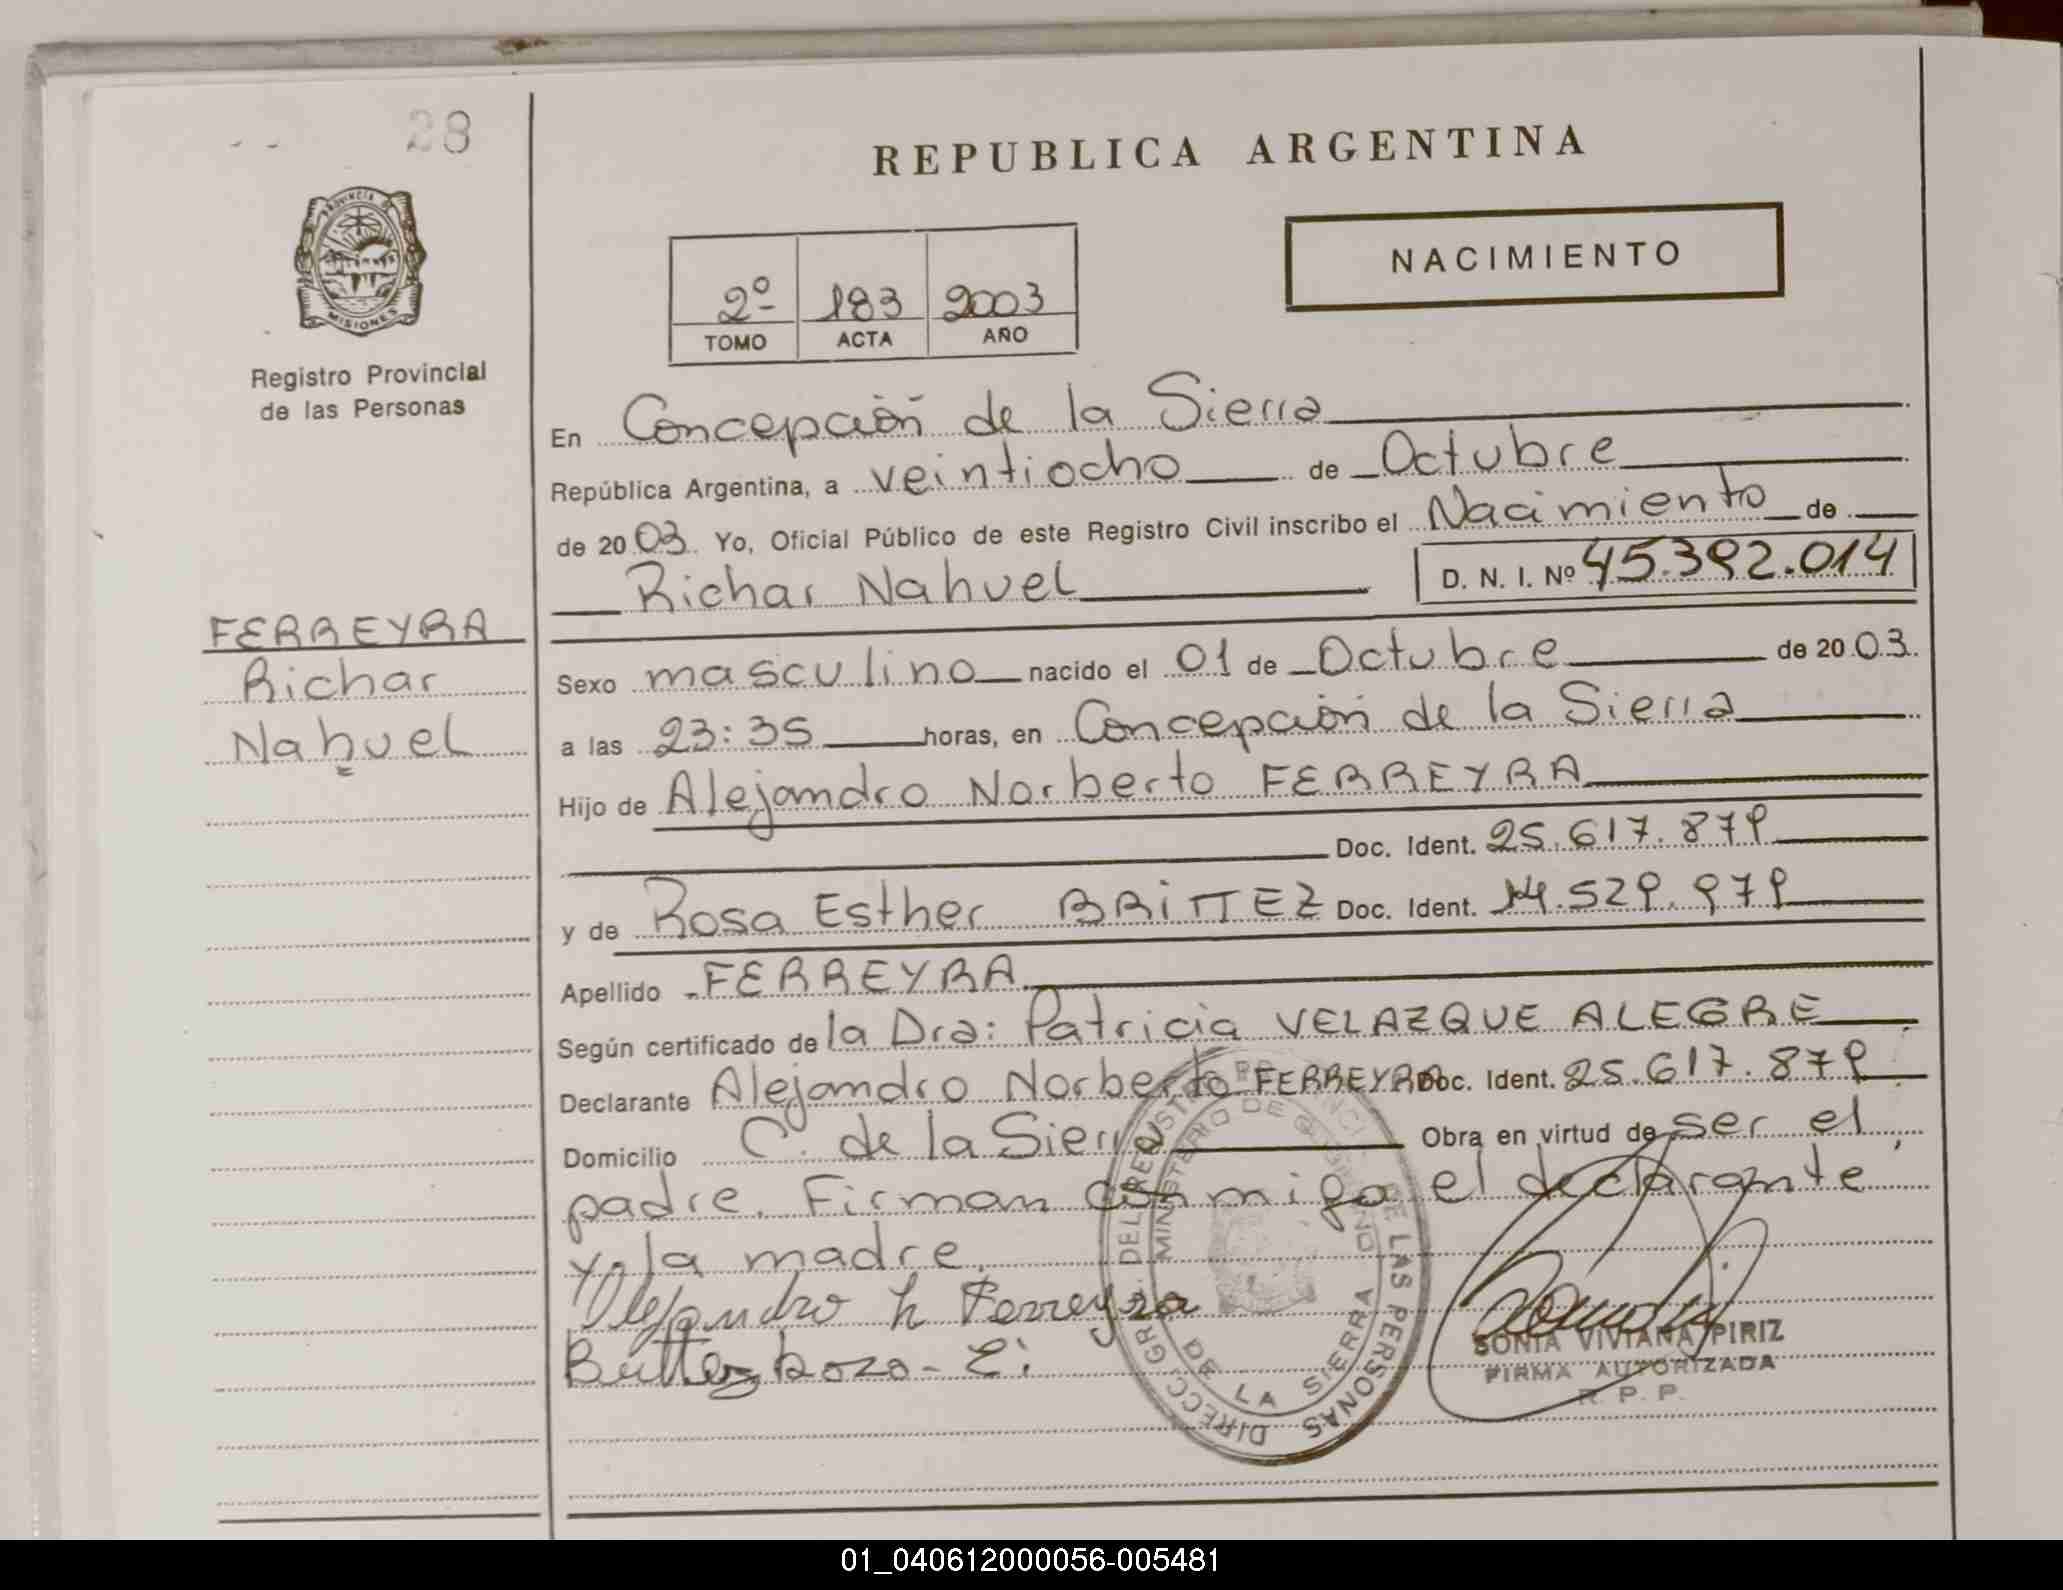 28
PROVINCIA DE
MISIONES
Registro Provincial
de las Personas
FERREYRA
Richar
Nahuel
REPUBLICA ARGENTINA
NACIMIENTO
2º 183 2003
TOMO ACTA AÑO
En Concepción de la Sierra
República Argentina, a veintiocho de Octubre
de 2003. Yo, Oficial Público de este Registro Civil inscribo el Nacimiento de
Richar Nahuel D. N. I. Nº 45.392.014
Sexo masculino nacido el 01 de Octubre de 2003.
a las 23:35 horas, en Concepción de la Sierra
Hijo de Alejandro Norberto FERREYRA
Doc. Ident. 25.617.879
y de Rosa Esther BRITTEZ Doc. Ident. 14.529.979
Apellido FERREYRA
Según certificado de la Dra: Patricia VELAZQUE ALEGRE
Declarante Alejandro Norberto FERREYRA Doc. Ident. 25.617.879
Domicilio C. de la Sierra Obra en virtud de ser el
padre. Firman conmigo el declarante
y la madre.
Alejandro N Ferreyra
DE LAS PERSONAS
MINISTERIO DE GOBIERNO
DE LA SIERRA
SONIA VIVIANA PIRIZ
FIRMA AUTORIZADA
R. P. P.
01_040612000056-005481